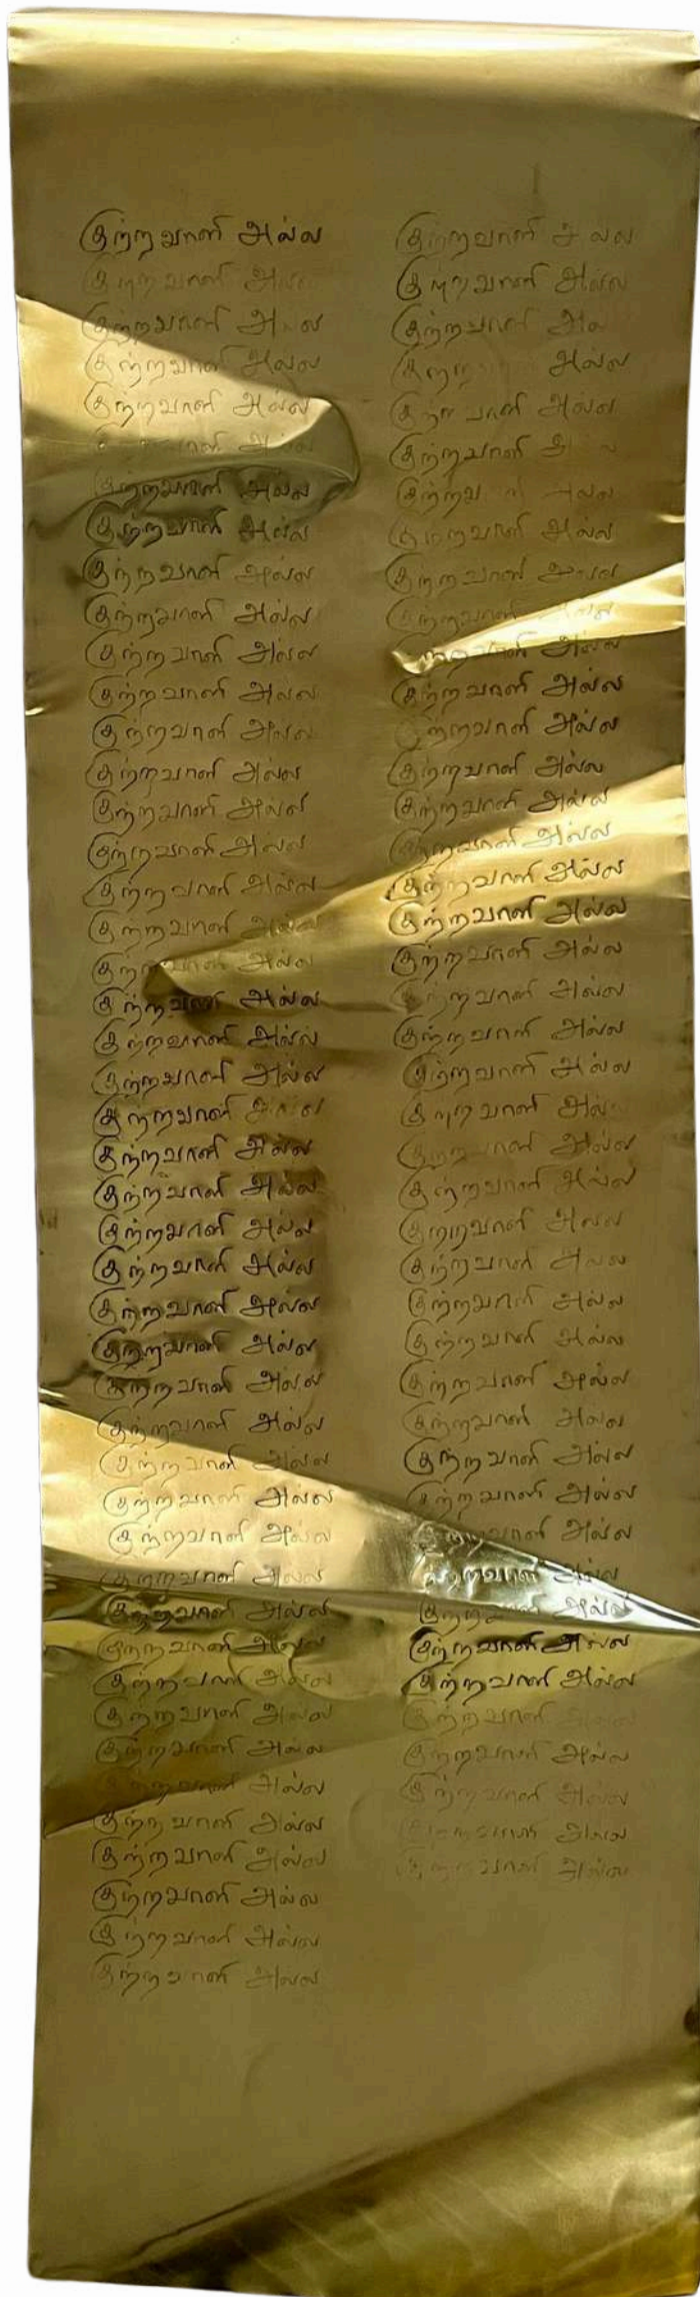 குற்றவாளி அல்ல
குற்றவாளி அல்ல
குற்றவாளி அல்ல
குற்றவாளி அல்ல
குற்றவாளி அல்ல
குற்றவாளி அல்ல
குற்றவாளி அல்ல
குற்றவாளி அல்ல
குற்றவாளி அல்ல
குற்றவாளி அல்ல
குற்றவாளி அல்ல
குற்றவாளி அல்ல
குற்றவாளி அல்ல
குற்றவாளி அல்ல
குற்றவாளி அல்ல
குற்றவாளி அல்ல
குற்றவாளி அல்ல
குற்றவாளி அல்ல
குற்றவாளி அல்ல
குற்றவாளி அல்ல
குற்றவாளி அல்ல
குற்றவாளி அல்ல
குற்றவாளி அல்ல
குற்றவாளி அல்ல
குற்றவாளி அல்ல
குற்றவாளி அல்ல
குற்றவாளி அல்ல
குற்றவாளி அல்ல
குற்றவாளி அல்ல
குற்றவாளி அல்ல
குற்றவாளி அல்ல
குற்றவாளி அல்ல
குற்றவாளி அல்ல
குற்றவாளி அல்ல
குற்றவாளி அல்ல
குற்றவாளி அல்ல
குற்றவாளி அல்ல
குற்றவாளி அல்ல
குற்றவாளி அல்ல
குற்றவாளி அல்ல
குற்றவாளி அல்ல
குற்றவாளி அல்ல
குற்றவாளி அல்ல
குற்றவாளி அல்ல
குற்றவாளி அல்ல
குற்றவாளி அல்ல
குற்றவாளி அல்ல
குற்றவாளி அல்ல
குற்றவாளி அல்ல
குற்றவாளி அல்ல
குற்றவாளி அல்ல
குற்றவாளி அல்ல
குற்றவாளி அல்ல
குற்றவாளி அல்ல
குற்றவாளி அல்ல
குற்றவாளி அல்ல
குற்றவாளி அல்ல
குற்றவாளி அல்ல
குற்றவாளி அல்ல
குற்றவாளி அல்ல
குற்றவாளி அல்ல
குற்றவாளி அல்ல
குற்றவாளி அல்ல
குற்றவாளி அல்ல
குற்றவாளி அல்ல
குற்றவாளி அல்ல
குற்றவாளி அல்ல
குற்றவாளி அல்ல
குற்றவாளி அல்ல
குற்றவாளி அல்ல
குற்றவாளி அல்ல
குற்றவாளி அல்ல
குற்றவாளி அல்ல
குற்றவாளி அல்ல
குற்றவாளி அல்ல
குற்றவாளி அல்ல
குற்றவாளி அல்ல
குற்றவாளி அல்ல
குற்றவாளி அல்ல
குற்றவாளி அல்ல
குற்றவாளி அல்ல
குற்றவாளி அல்ல
குற்றவாளி அல்ல
குற்றவாளி அல்ல
குற்றவாளி அல்ல
குற்றவாளி அல்ல
குற்றவாளி அல்ல
குற்றவாளி அல்ல
குற்றவாளி அல்ல